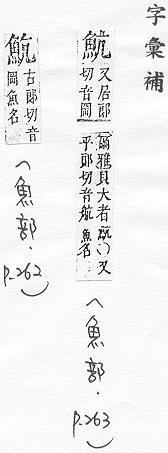 字彙補
魧 又居郎
切音岡
爾雅貝大者魧○又
平郎切音航 魚名
(魚部.p.263)
魧 古郎切音
岡魚名
(魚部.p.262)